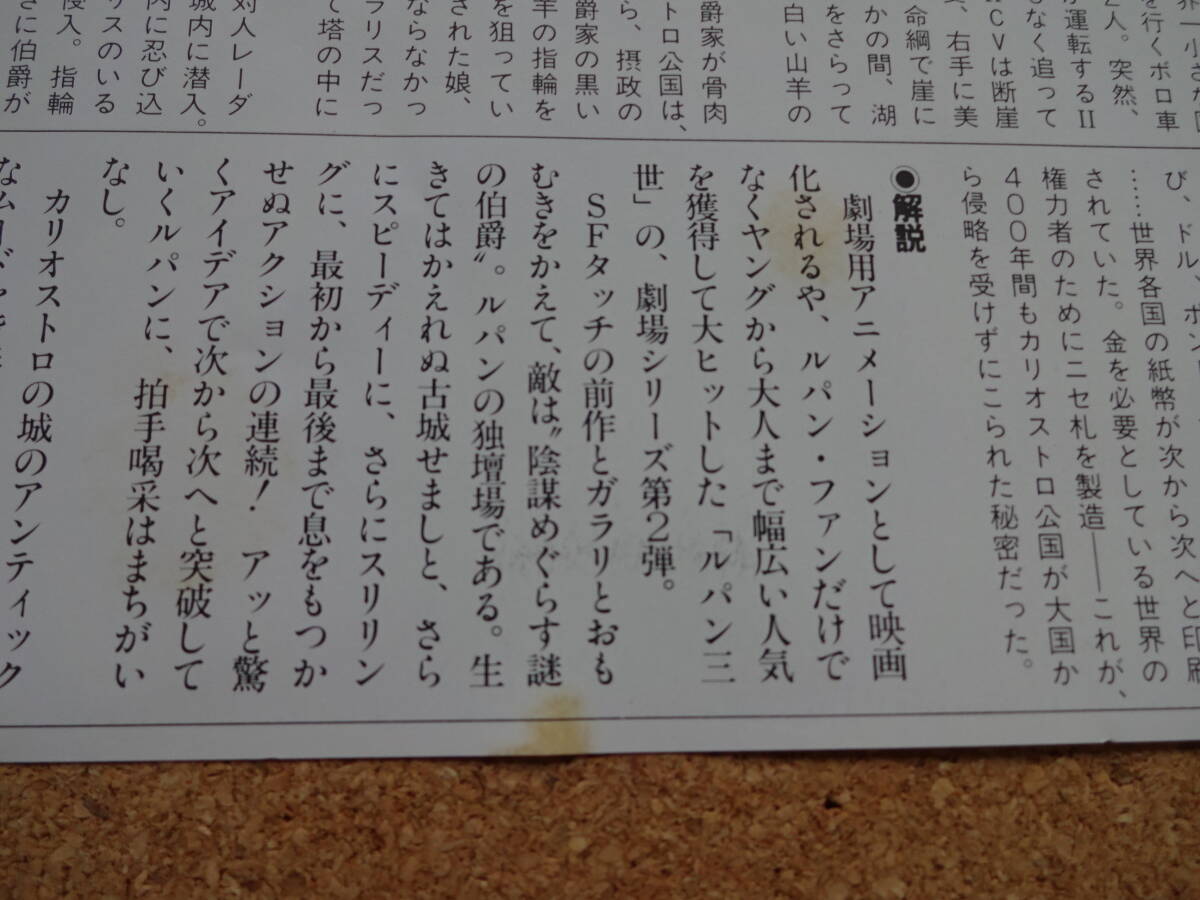 界一小さな国
を行くボロ車
2人。突然、
が運転するII
しなく追って
CVは断崖
、右手に美
命綱で崖に
かの間、湖
をさらって
白い山羊の
爵家が骨肉
トロ公国は、
ら、摂政の
爵家の黒い
羊の指輪を
を狙ってい
された娘、
ならなかっ
ラリスだっ
て塔の中に
対人レーダ
城内に潜入。
内に忍び込
リスのいる
侵入。指輪
さに伯爵が
び、ドル、ポン
……世界各国の紙幣が次から次へと印刷
されていた。金を必要としている世界の
権力者のためにニセ札を製造――これが、
400年間もカリオストロ公国が大国か
ら侵略を受けずにこられた秘密だった。
◉解説
劇場用アニメーションとして映画
化されるや、ルパン・ファンだけで
なくヤングから大人まで幅広い人気
を獲得して大ヒットした「ルパン三
世」の、劇場シリーズ第2弾。
SFタッチの前作とガラリとおも
むきをかえて、敵は〝陰謀めぐらす謎
の伯爵〟。ルパンの独壇場である。生
きてはかえれぬ古城せましと、さら
にスピーディーに、さらにスリリン
グに、最初から最後まで息をもつか
せぬアクションの連続! アッと驚
くアイデアで次から次へと突破して
いくルパンに、拍手喝采はまちがい
なし。
カリオストロの城のアンティック